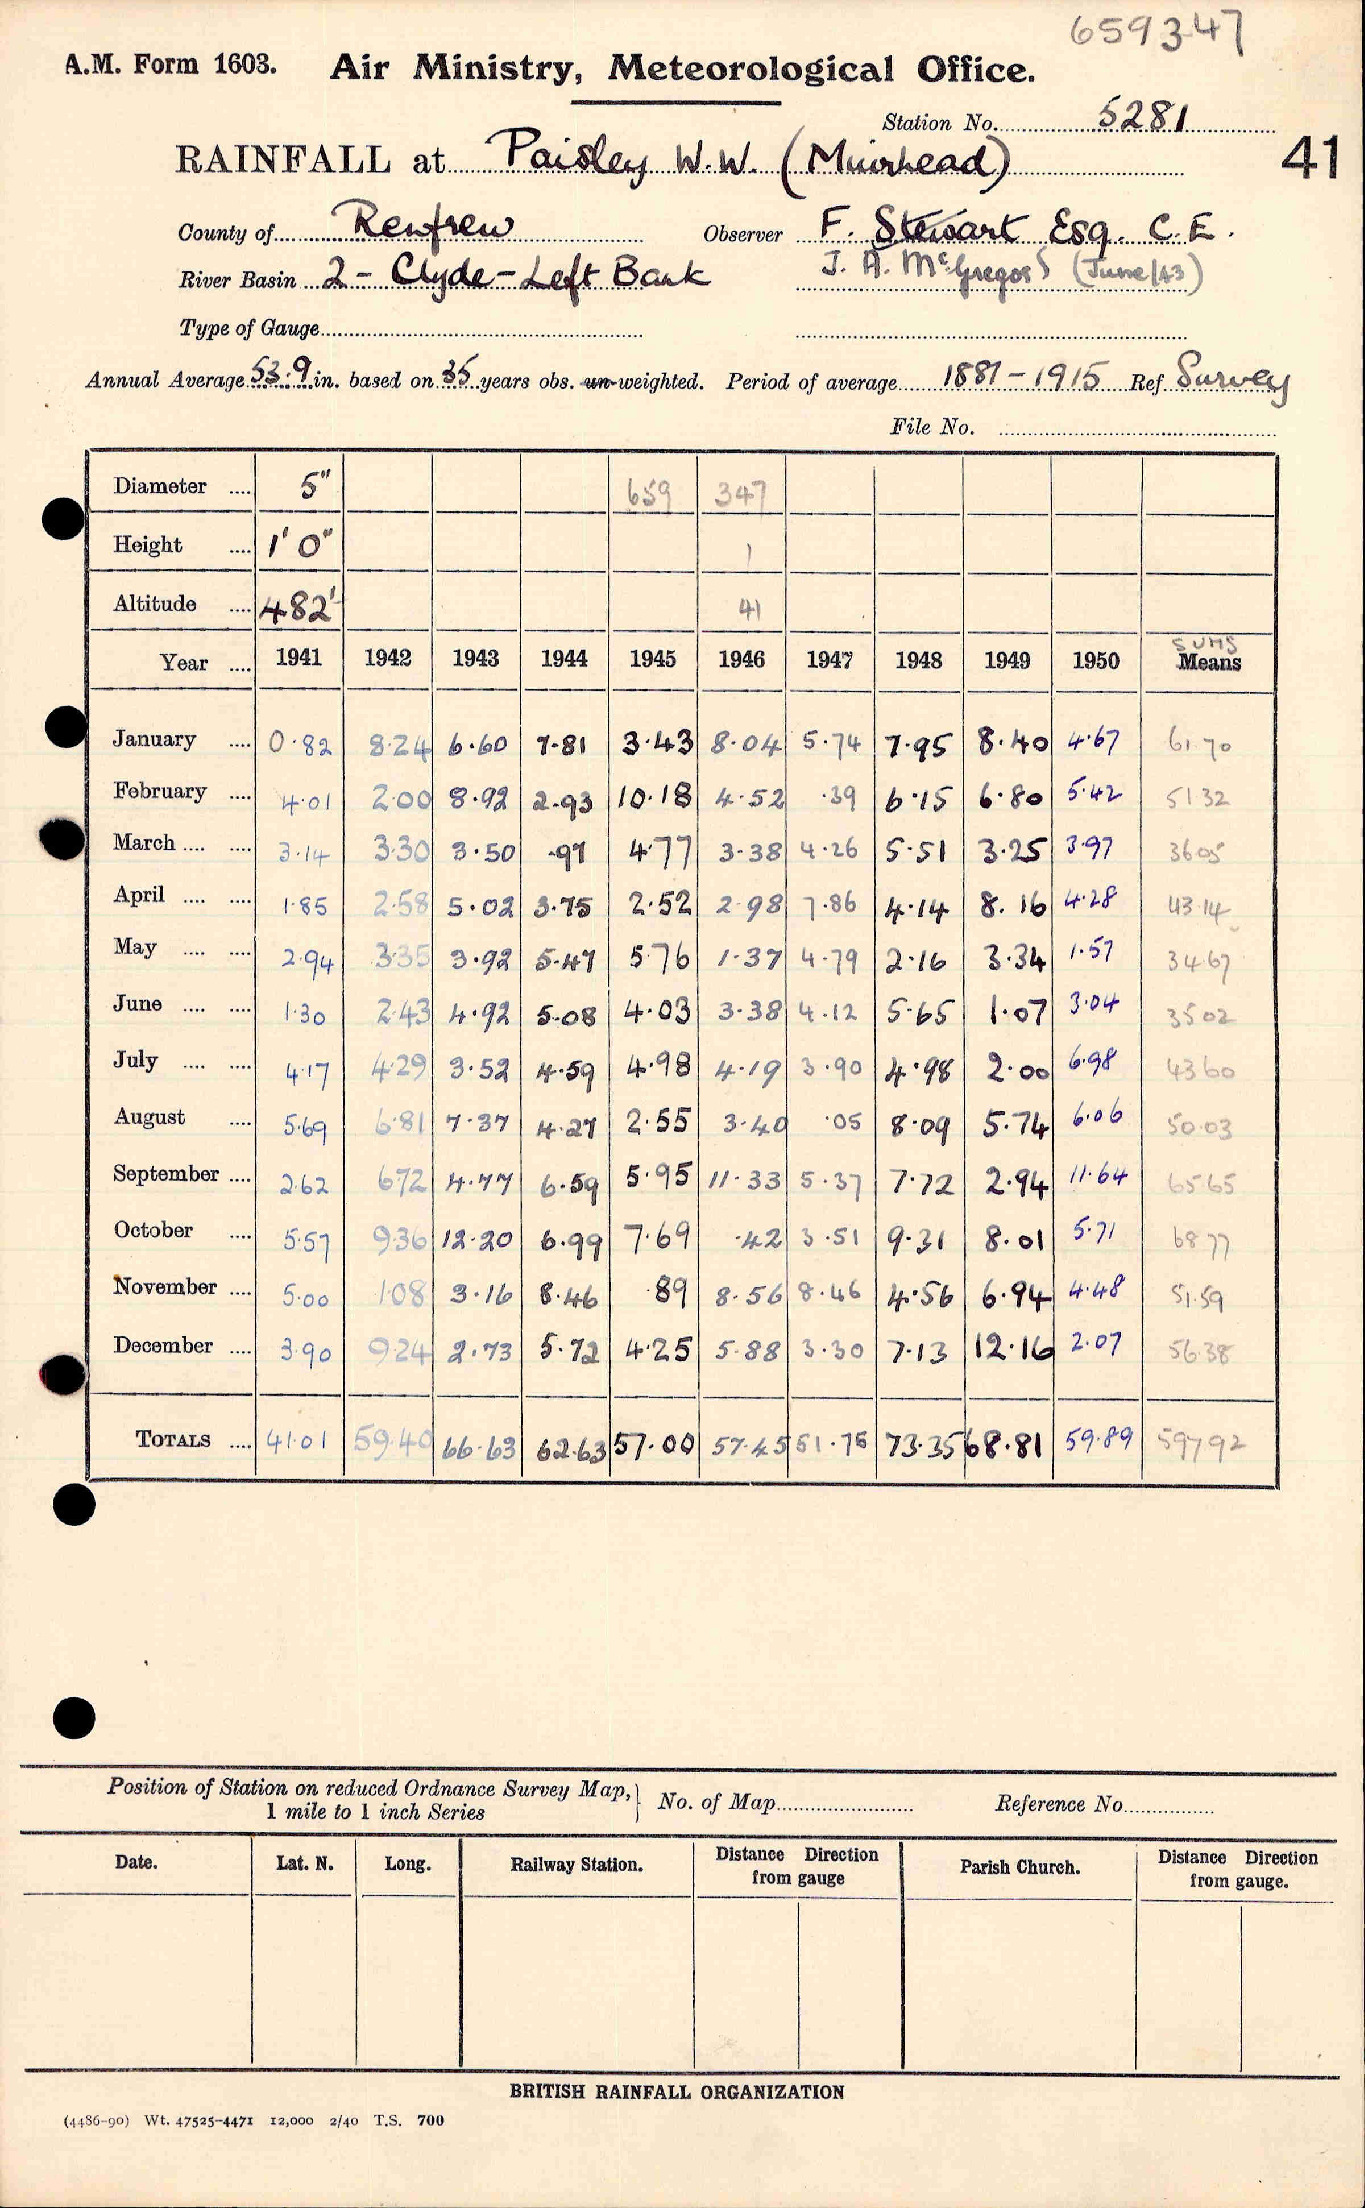 659347
A.M. Form 1603. Air Ministry, Meteorological Office.
Station No. 5281
RAINFALL at Paisley W.W. (Muirhead) 41
County of Renfrew Observer F. Stewart Esq. C.E.
River Basin 2 - Clyde - Left Bank J. A. McGregor (June/43)
Type of Gauge
Annual Average 53.9 in. based on 35 years obs. un-weighted. Period of average 1881 - 1915 Ref. Survey
File No.
Diameter .... 5" 659 347
Height .... 1' 0" 1
Altitude .... 482' 41
SUMS
Year .... 1941 1942 1943 1944 1945 1946 1947 1948 1949 1950 Means
January .... 0.82 8.24 6.60 7.81 3.43 8.04 5.74 7.95 8.40 4.67 61.70
February .... 4.01 2.00 8.92 2.93 10.18 4.52 .39 6.15 6.80 5.42 51 32
March .... .... 3.14 3.30 3.50 .97 4.77 3.38 4.26 5.51 3.25 3.97 36 05
April .... .... 1.85 2.58 5.02 3.75 2.52 2.98 7.86 4.14 8.16 4.28 43.14
May .... .... 2.94 3.35 3.92 5.47 5.76 1.37 4.79 2.16 3.34 1.57 34 67
June .... .... 1.30 2.43 4.92 5.08 4.03 3.38 4.12 5.65 1.07 3.04 35 02
July .... .... 4.17 4.29 3.52 4.59 4.98 4.19 3.90 4.98 2.00 6.98 43 60
August .... 5.69 6.81 7.37 4.27 2.55 3.40 .05 8.09 5.74 6.06 50.03
September .... 2.62 6.72 4.77 6.59 5.95 11.33 5.37 7.72 2.94 11.64 65 65
October .... 5.57 9.36 12.20 6.99 7.69 .42 3.51 9.31 8.01 5.71 68 77
November .... 5.00 1.08 3.16 8.46 .89 8.56 8.46 4.56 6.94 4.48 51.59
December .... 3.90 9.24 2.73 5.72 4.25 5.88 3.30 7.13 12.16 2.07 56.38
TOTALS .... 41.01 59.40 66.63 62.63 57.00 57.45 51.75 73.35 68.81 59.89 597 92
Position of Station on reduced Ordnance Survey Map, 1 mile to 1 inch Series No. of Map Reference No.
Date. Lat. N. Long. Railway Station. Distance from gauge Direction Parish Church. Distance from gauge. Direction
BRITISH RAINFALL ORGANIZATION
(4486-90) Wt. 47525-4471 12,000 2/40 T.S. 700